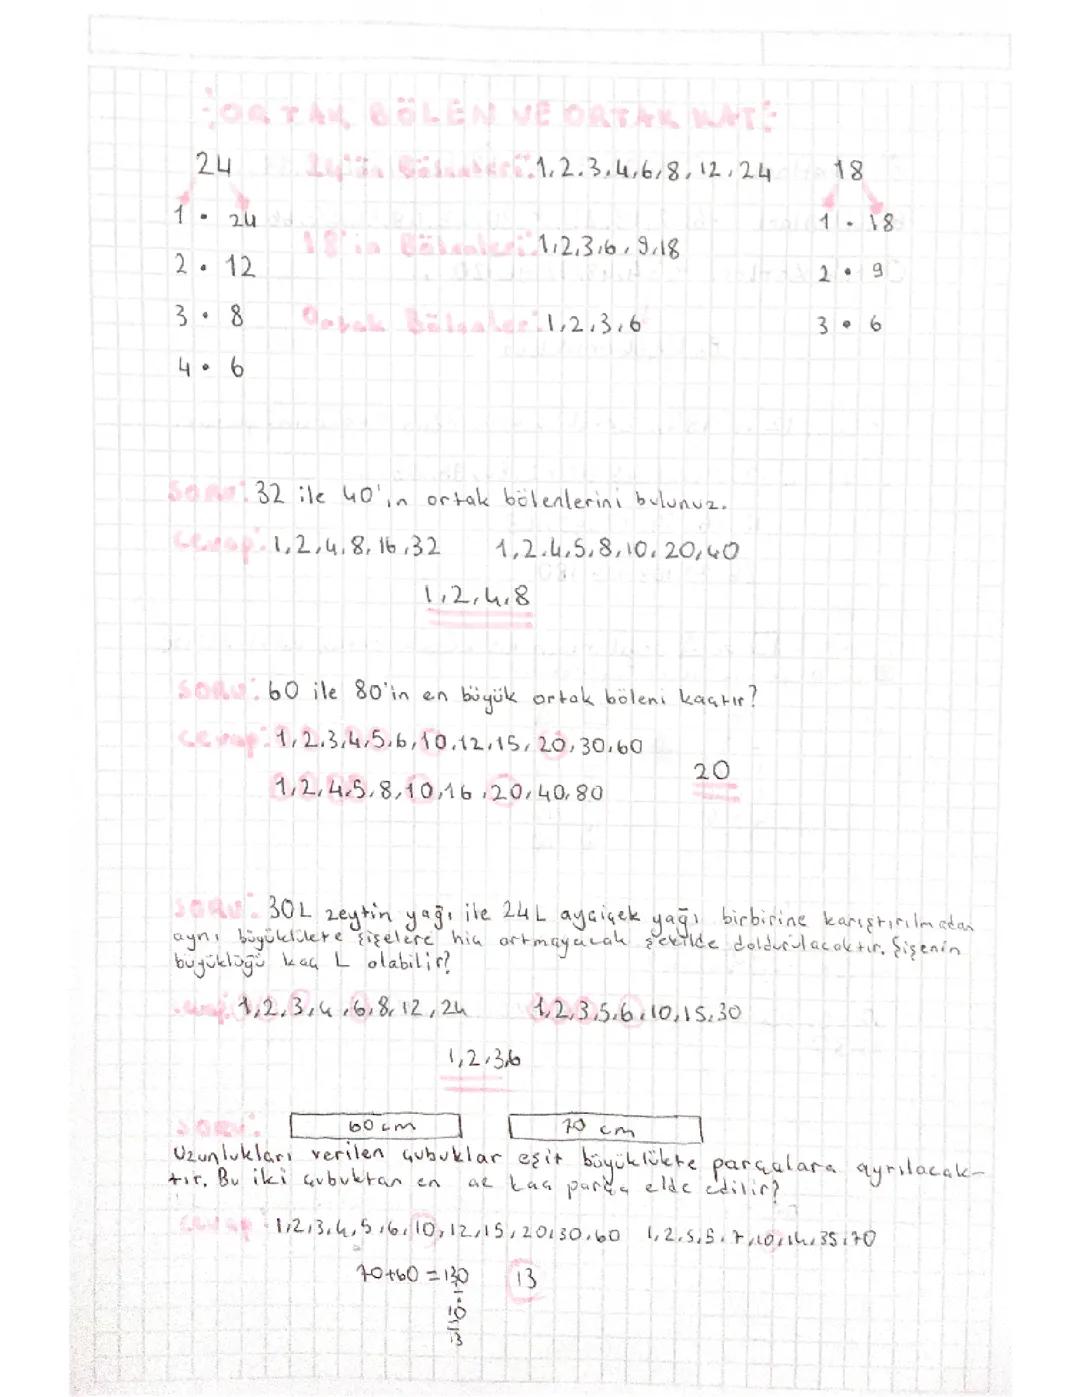 ORTAK BÖLEN VE ORTAK KAT
24 24'ün Bölenleri: 1, 2, 3, 4, 6, 8, 12, 24 18
1 . 24 1 . 18
18'in Bölenleri: 1, 2, 3, 6, 9, 18
2 . 12 2 . 9
3 . 8 Ortak Bölenler: 1, 2, 3, 6 3 . 6
4 . 6
Soru: 32 ile 40'ın ortak bölenlerini bulunuz.
Cevap: 1, 2, 4, 8, 16, 32 1, 2, 4, 5, 8, 10, 20, 40
1, 2, 4, 8
SORU: 60 ile 80'in en büyük ortak böleni kaçtır?
Cevap: 1, 2, 3, 4, 5, 6, 10, 12, 15, 20, 30, 60
20
1, 2, 4, 5, 8, 10, 16, 20, 40, 80
SORU: 30L zeytin yağı ile 24L ayçiçek yağı birbirine karıştırılmadan
aynı büyüklükte şişelere hiç artmayacak şekilde doldurulacaktır. Şişenin
büyüklüğü kaç L olabilir?
Cevap: 1, 2, 3, 4, 6, 8, 12, 24 1, 2, 3, 5, 6, 10, 15, 30
1, 2, 3, 6
SORU: 60 cm 70 cm
Uzunlukları verilen çubuklar eşit büyüklükte parçalara ayrılacak-
tır. Bu iki çubuktan en az kaç parça elde edilir?
Cevap: 1, 2, 3, 4, 5, 6, 10, 12, 15, 20, 30, 60 1, 2, 5, 5, 7, 10, 14, 35, 70
70+60 = 130 13
10
13